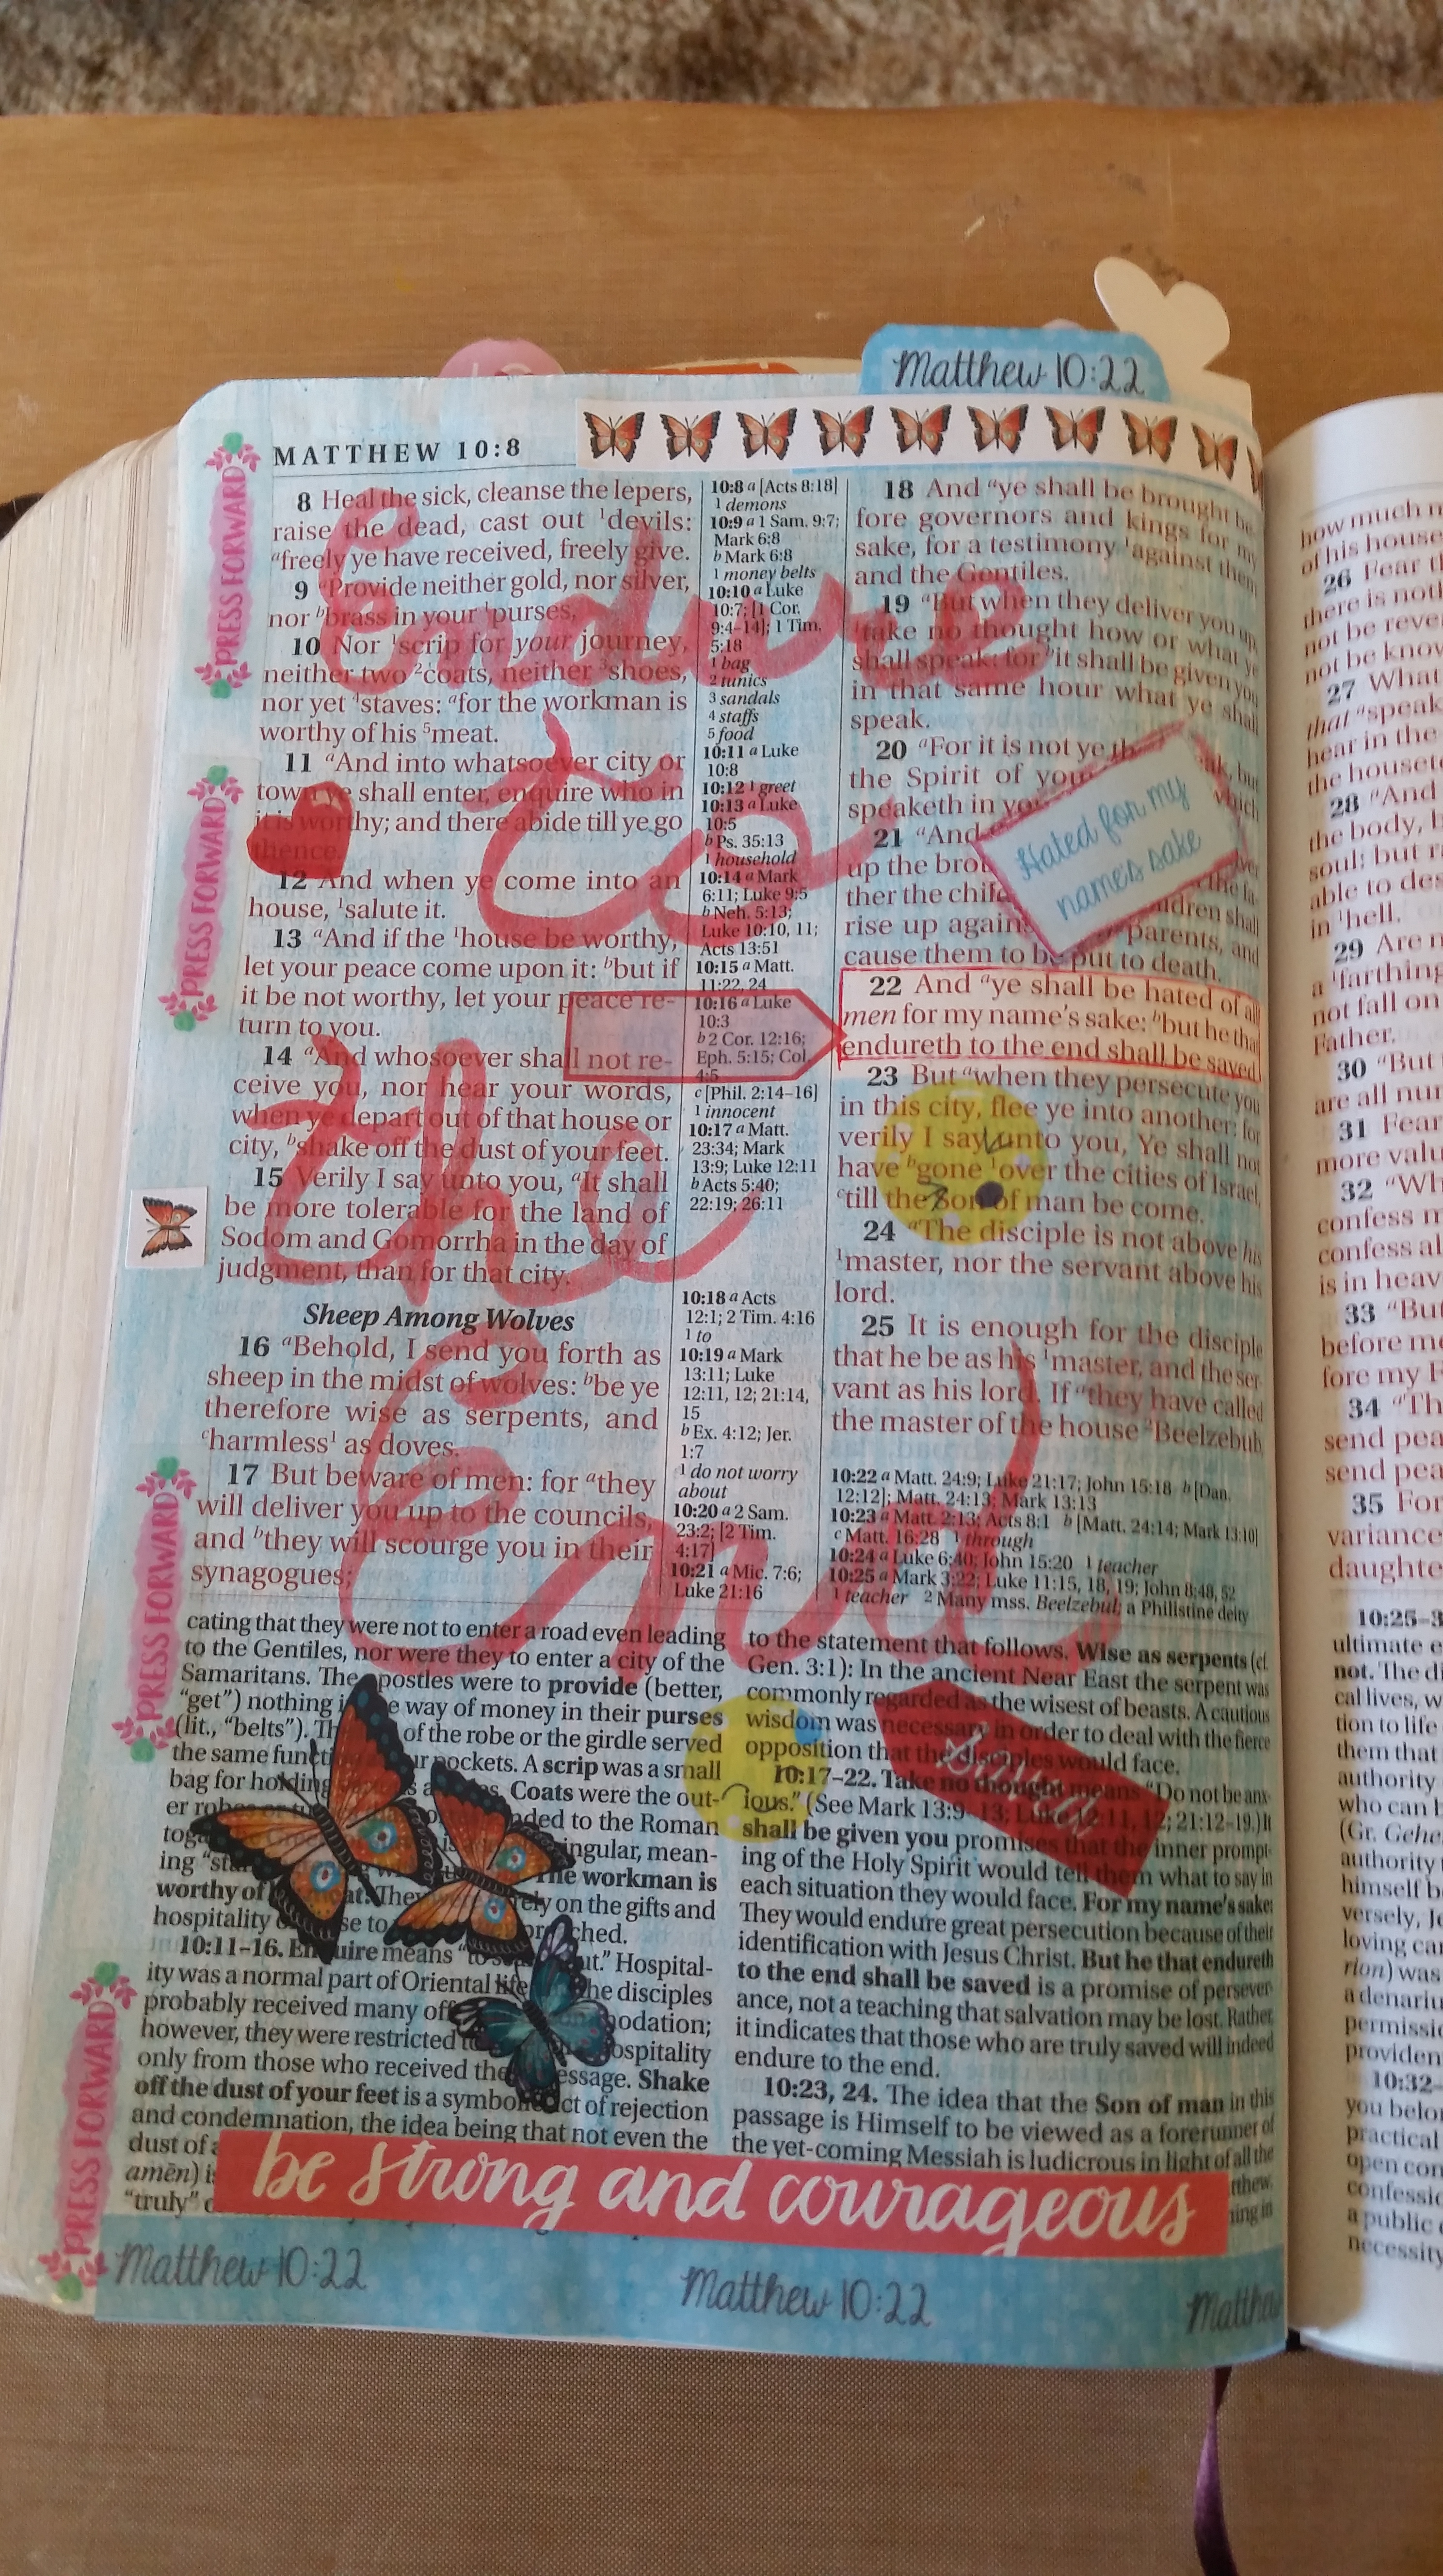 Matthew 10:22
MATTHEW 10:8
8 Heal the sick, cleanse the lepers,
raise the dead, cast out 1devils:
afreely ye have received, freely give.
9 aProvide neither gold, nor silver,
nor bbrass in your 1purses,
10 Nor 1scrip for your journey,
neither two 2coats, neither 3shoes,
nor yet 4staves: afor the workman is
worthy of his 5meat.
11 aAnd into whatsoever city or
town ye shall enter, enquire who in
it is worthy; and there abide till ye go
thence.
12 And when ye come into an
house, 1salute it.
13 aAnd if the 1house be worthy,
let your peace come upon it: bbut if
it be not worthy, let your peace re-
turn to you.
14 aAnd whosoever shall not re-
ceive you, nor hear your words,
when ye depart out of that house or
city, bshake off the dust of your feet.
15 Verily I say unto you, aIt shall
be more tolerable for the land of
Sodom and Gomorrha in the day of
judgment, than for that city.
Sheep Among Wolves
16 aBehold, I send you forth as
sheep in the midst of wolves: bbe ye
therefore wise as serpents, and
charmless1 as doves.
17 But beware of men: for athey
will deliver you up to the councils,
and bthey will scourge you in their
synagogues;
10:8 a [Acts 8:18]
1 demons
10:9 a 1 Sam. 9:7;
Mark 6:8
b Mark 6:8
1 money belts
10:10 a Luke
10:7; [1 Cor.
9:4–14]; 1 Tim.
5:18
1 bag
2 tunics
3 sandals
4 staffs
5 food
10:11 a Luke
10:8
10:12 1 greet
10:13 a Luke
10:5
b Ps. 35:13
1 household
10:14 a Mark
6:11; Luke 9:5
b Neh. 5:13;
Luke 10:10, 11;
Acts 13:51
10:15 a Matt.
11:22, 24
10:16 a Luke
10:3
b 2 Cor. 12:16;
Eph. 5:15; Col.
4:5
c [Phil. 2:14–16]
1 innocent
10:17 a Matt.
23:34; Mark
13:9; Luke 12:11
b Acts 5:40;
22:19; 26:11
10:18 a Acts
12:1; 2 Tim. 4:16
1 to
10:19 a Mark
13:11; Luke
12:11, 12; 21:14,
15
b Ex. 4:12; Jer.
1:7
1 do not worry
about
10:20 a 2 Sam.
23:2; [2 Tim.
4:17]
10:21 a Mic. 7:6;
Luke 21:16
18 And aye shall be brought be
fore governors and kings for my
sake, for a testimony 1against them
and the Gentiles.
19 aBut when they deliver you up,
1take no thought how or what ye
shall speak: for bit shall be given you
in that same hour what ye shall
speak.
20 aFor it is not ye
the Spirit of your which
speaketh in you
21 aAnd
up the
ther the
rise up parents, and
cause them to be put to death.
22 And aye shall be hated of all
men for my name's sake: bbut he that
endureth to the end shall be saved.
23 But awhen they persecute you
in this city, flee ye into another: for
verily I say unto you, Ye shall not
have bgone 1over the cities of Israel,
ctill the Son of man be come.
24 aThe disciple is not above his
1master, nor the servant above his
lord.
25 It is enough for the disciple
that he be as his 1master, and the ser
vant as his lord. If athey have called
the master of the house 2Beelzebub
10:22 a Matt. 24:9; Luke 21:17; John 15:18 b [Dan.
12:12]; Matt. 24:13; Mark 13:13
10:23 a Matt. 2:13; Acts 8:1 b [Matt. 24:14; Mark 13:10]
c Matt. 16:28 1 through
10:24 a Luke 6:40; John 15:20 1 teacher
10:25 a Mark 3:22; Luke 11:15, 18, 19; John 8:48, 52
1 teacher 2 Many mss. Beelzebul; a Philistine deity
Endure
to
the
End
Hated for my
name's sake
Saved
PRESS FORWARD
PRESS FORWARD
PRESS FORWARD
PRESS FORWARD
cating that they were not to enter a road even leading
to the Gentiles, nor were they to enter a city of the
Samaritans. The apostles were to provide (better,
"get") nothing way of money in their purses
(lit., "belts"). of the robe or the girdle served
the same pockets. A scrip was a small
bag for holding Coats were the out-
er to the Roman
singular, mean-
ing The workman is
worthy of They on the gifts and
hospitality
10:11–16. Enquire means Hospital-
ity was a normal part of Oriental life the disciples
probably received many
however, they were restricted hospitality
only from those who received the message. Shake
off the dust of your feet is a symbolic act of rejection
and condemnation, the idea being that not even the
dust of
amēn)
"truly"
to the statement that follows. Wise as serpents (cf.
Gen. 3:1): In the ancient Near East the serpent was
commonly regarded as the wisest of beasts. A cautious
wisdom was necessary in order to deal with the fierce
opposition that the disciples would face.
10:17–22. Take no thought means "Do not be anx-
ious." (See Mark 13:9–13; Luke 12:11, 12; 21:12–19.) It
shall be given you promises that the inner prompt-
ing of the Holy Spirit would tell them what to say in
each situation they would face. For my name's sake:
They would endure great persecution because of their
identification with Jesus Christ. But he that endureth
to the end shall be saved is a promise of persever
ance, not a teaching that salvation may be lost. Rather,
it indicates that those who are truly saved will indeed
endure to the end.
10:23, 24. The idea that the Son of man in this
passage is Himself to be viewed as a forerunner of
the yet-coming Messiah is ludicrous in light of all the
be strong and courageous
Matthew 10:22
Matthew 10:22
how much
of his house
26 Fear
there is
not be
not be
27 What
that aspeak
hear in the
the
28 aAnd
the body,
soul: but
able to
in 1hell.
29 Are
a 1farthing
not fall on
Father.
30 aBut
are all
31 Fear
more
32
confess
confess
is in
33 aBut
before
fore my
34
send
send
35 For
variance